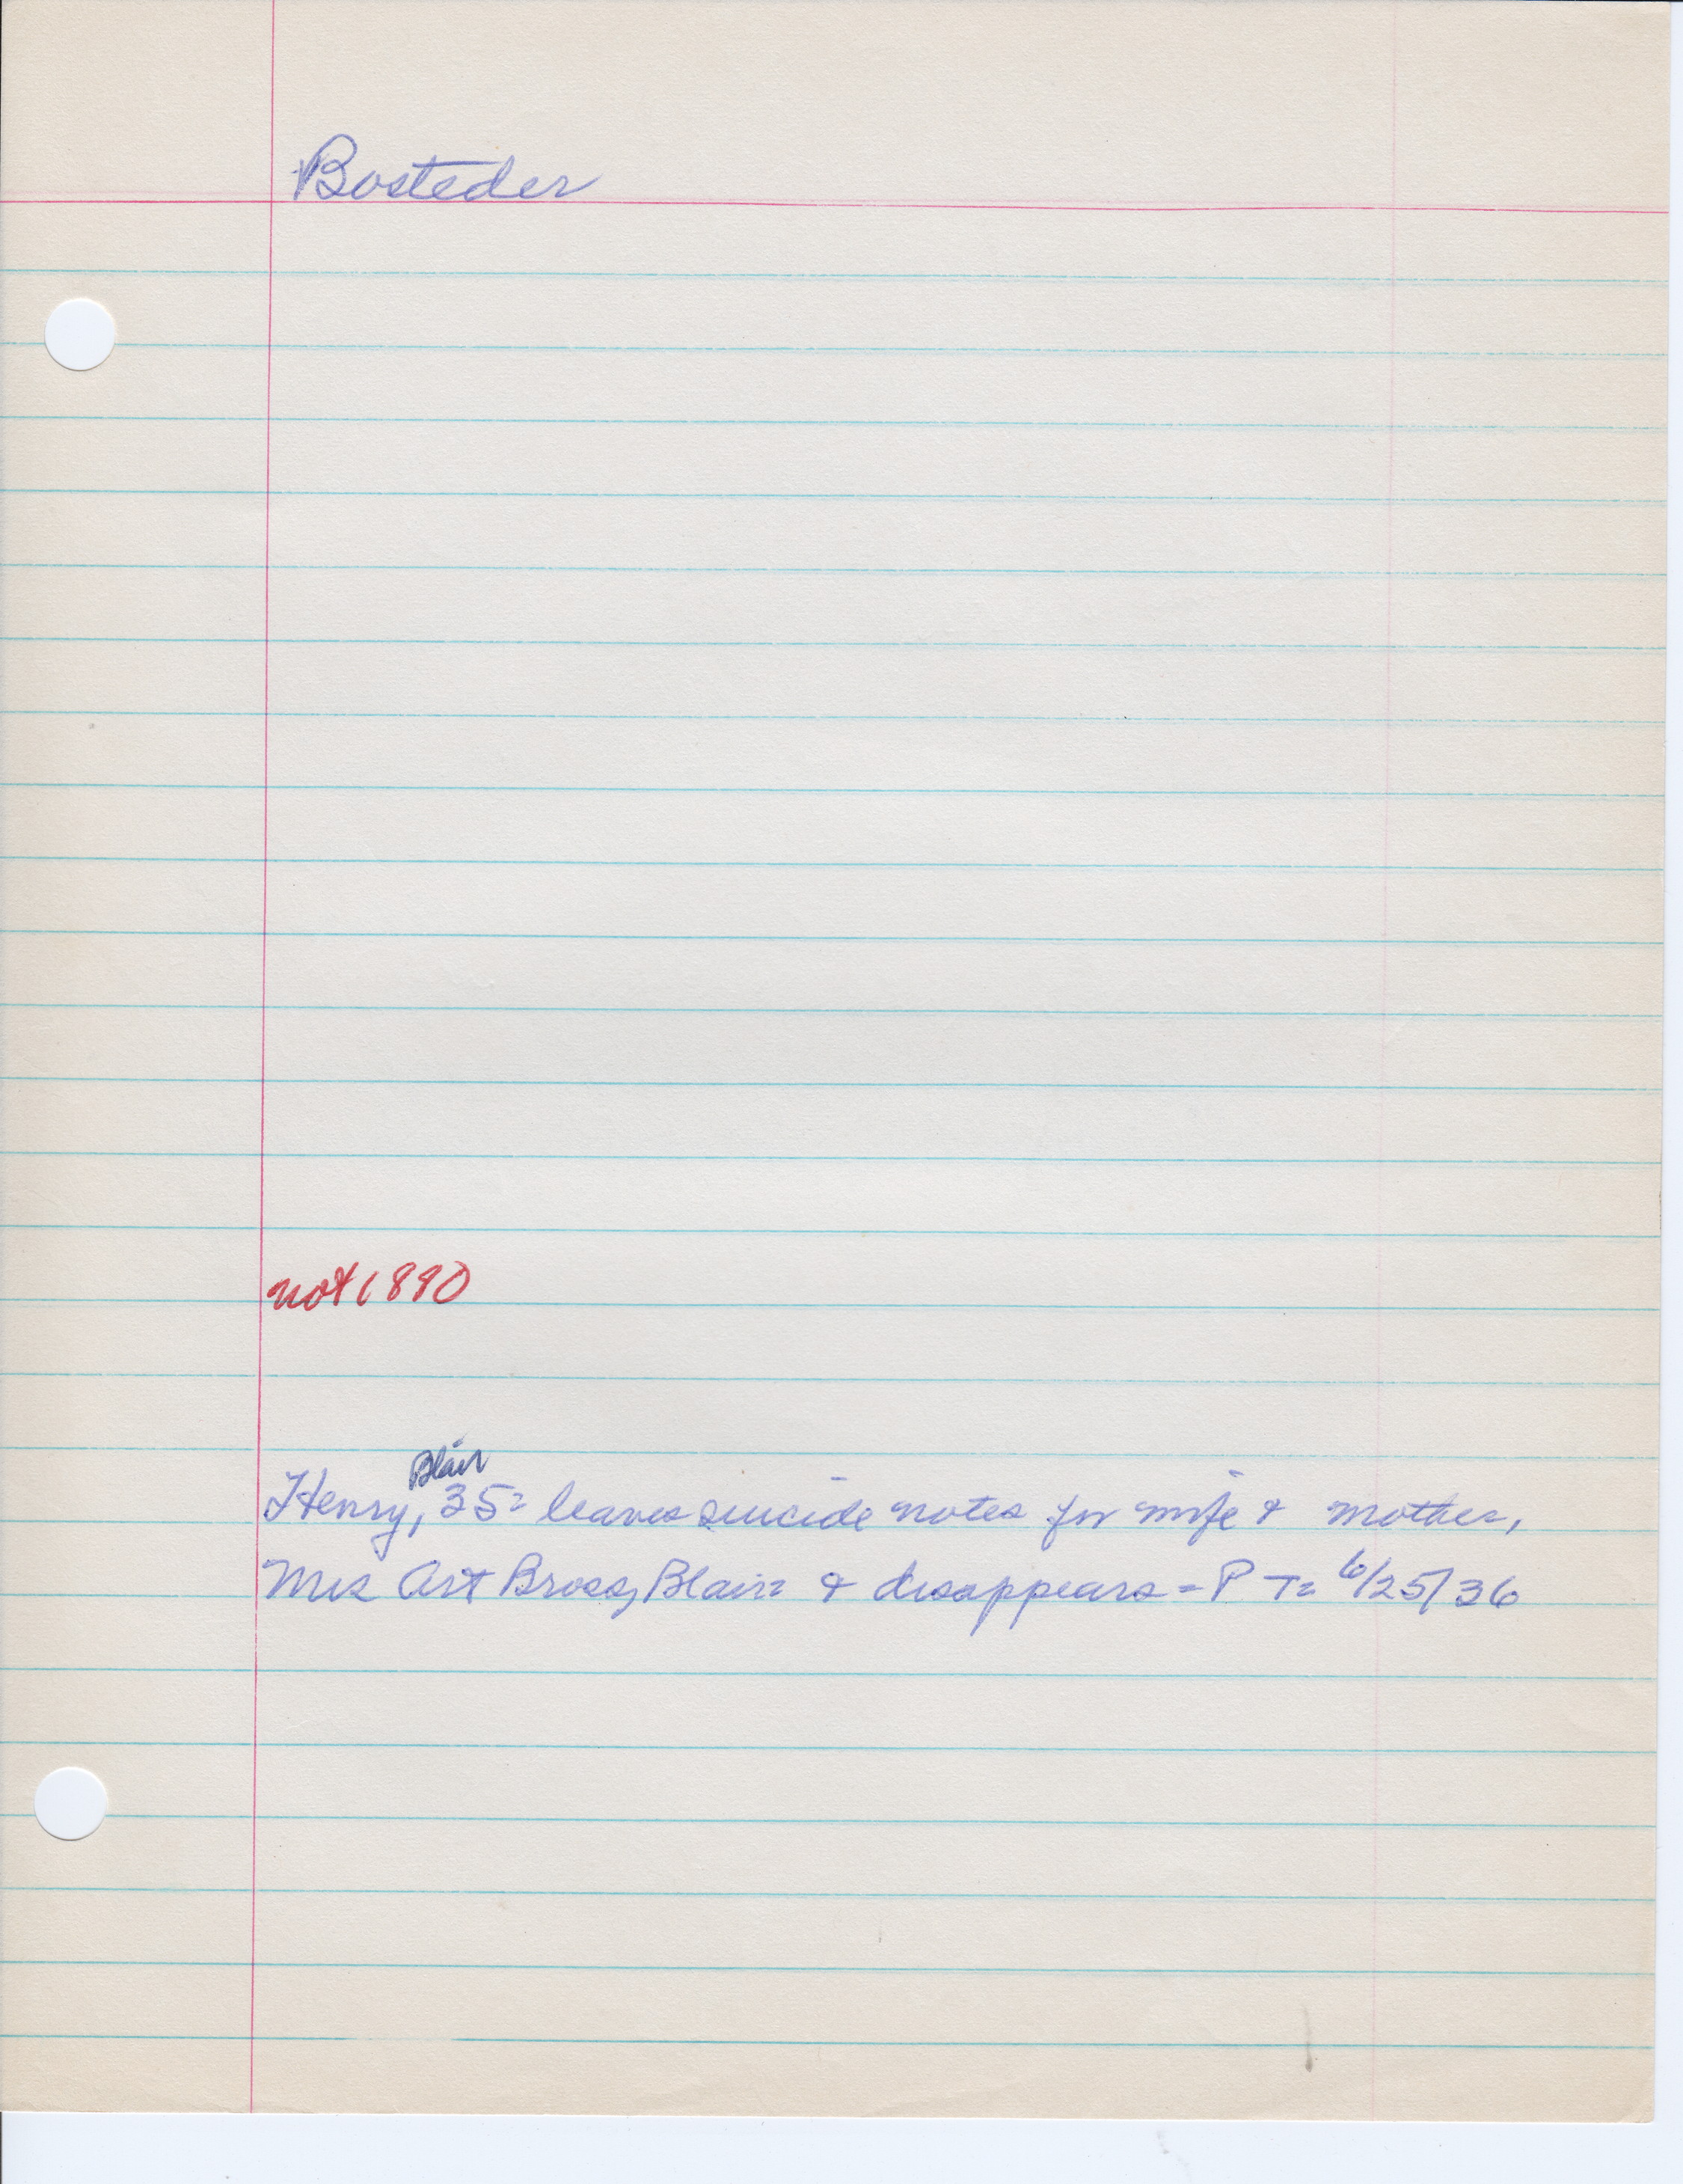 Bosteder
not 1890
Blair
Henry, 35= leaves suicide notes for wife & mother,
Mrs Art Bross, Blair= & disappears = P T= 6/25/36